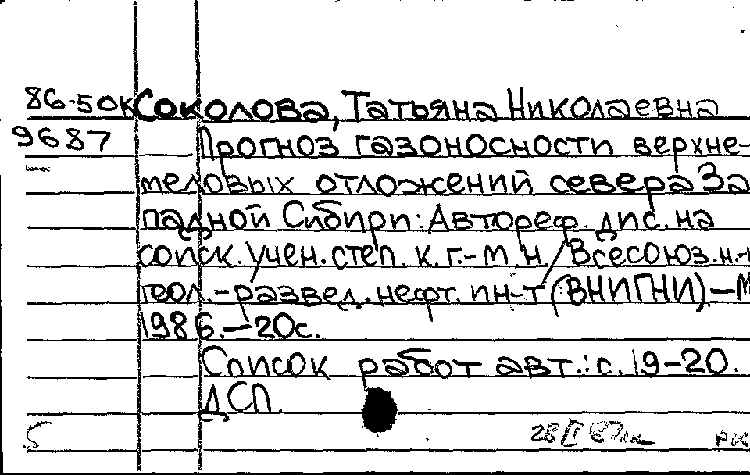 86-50к Соколова, Татьяна Николаевна
9687 Прогноз газоносности верхне-
меловых отложений севера За
падной Сибири: Автореф. дис. на
соиск. учен. степ. к. г.-м. н. / Всесоюз. н.-и
геол.-развед. нефт. ин-т (ВНИГНИ).—М
1986.—20с.
Список работ авт.: с. 19-20.
ДСП.
5